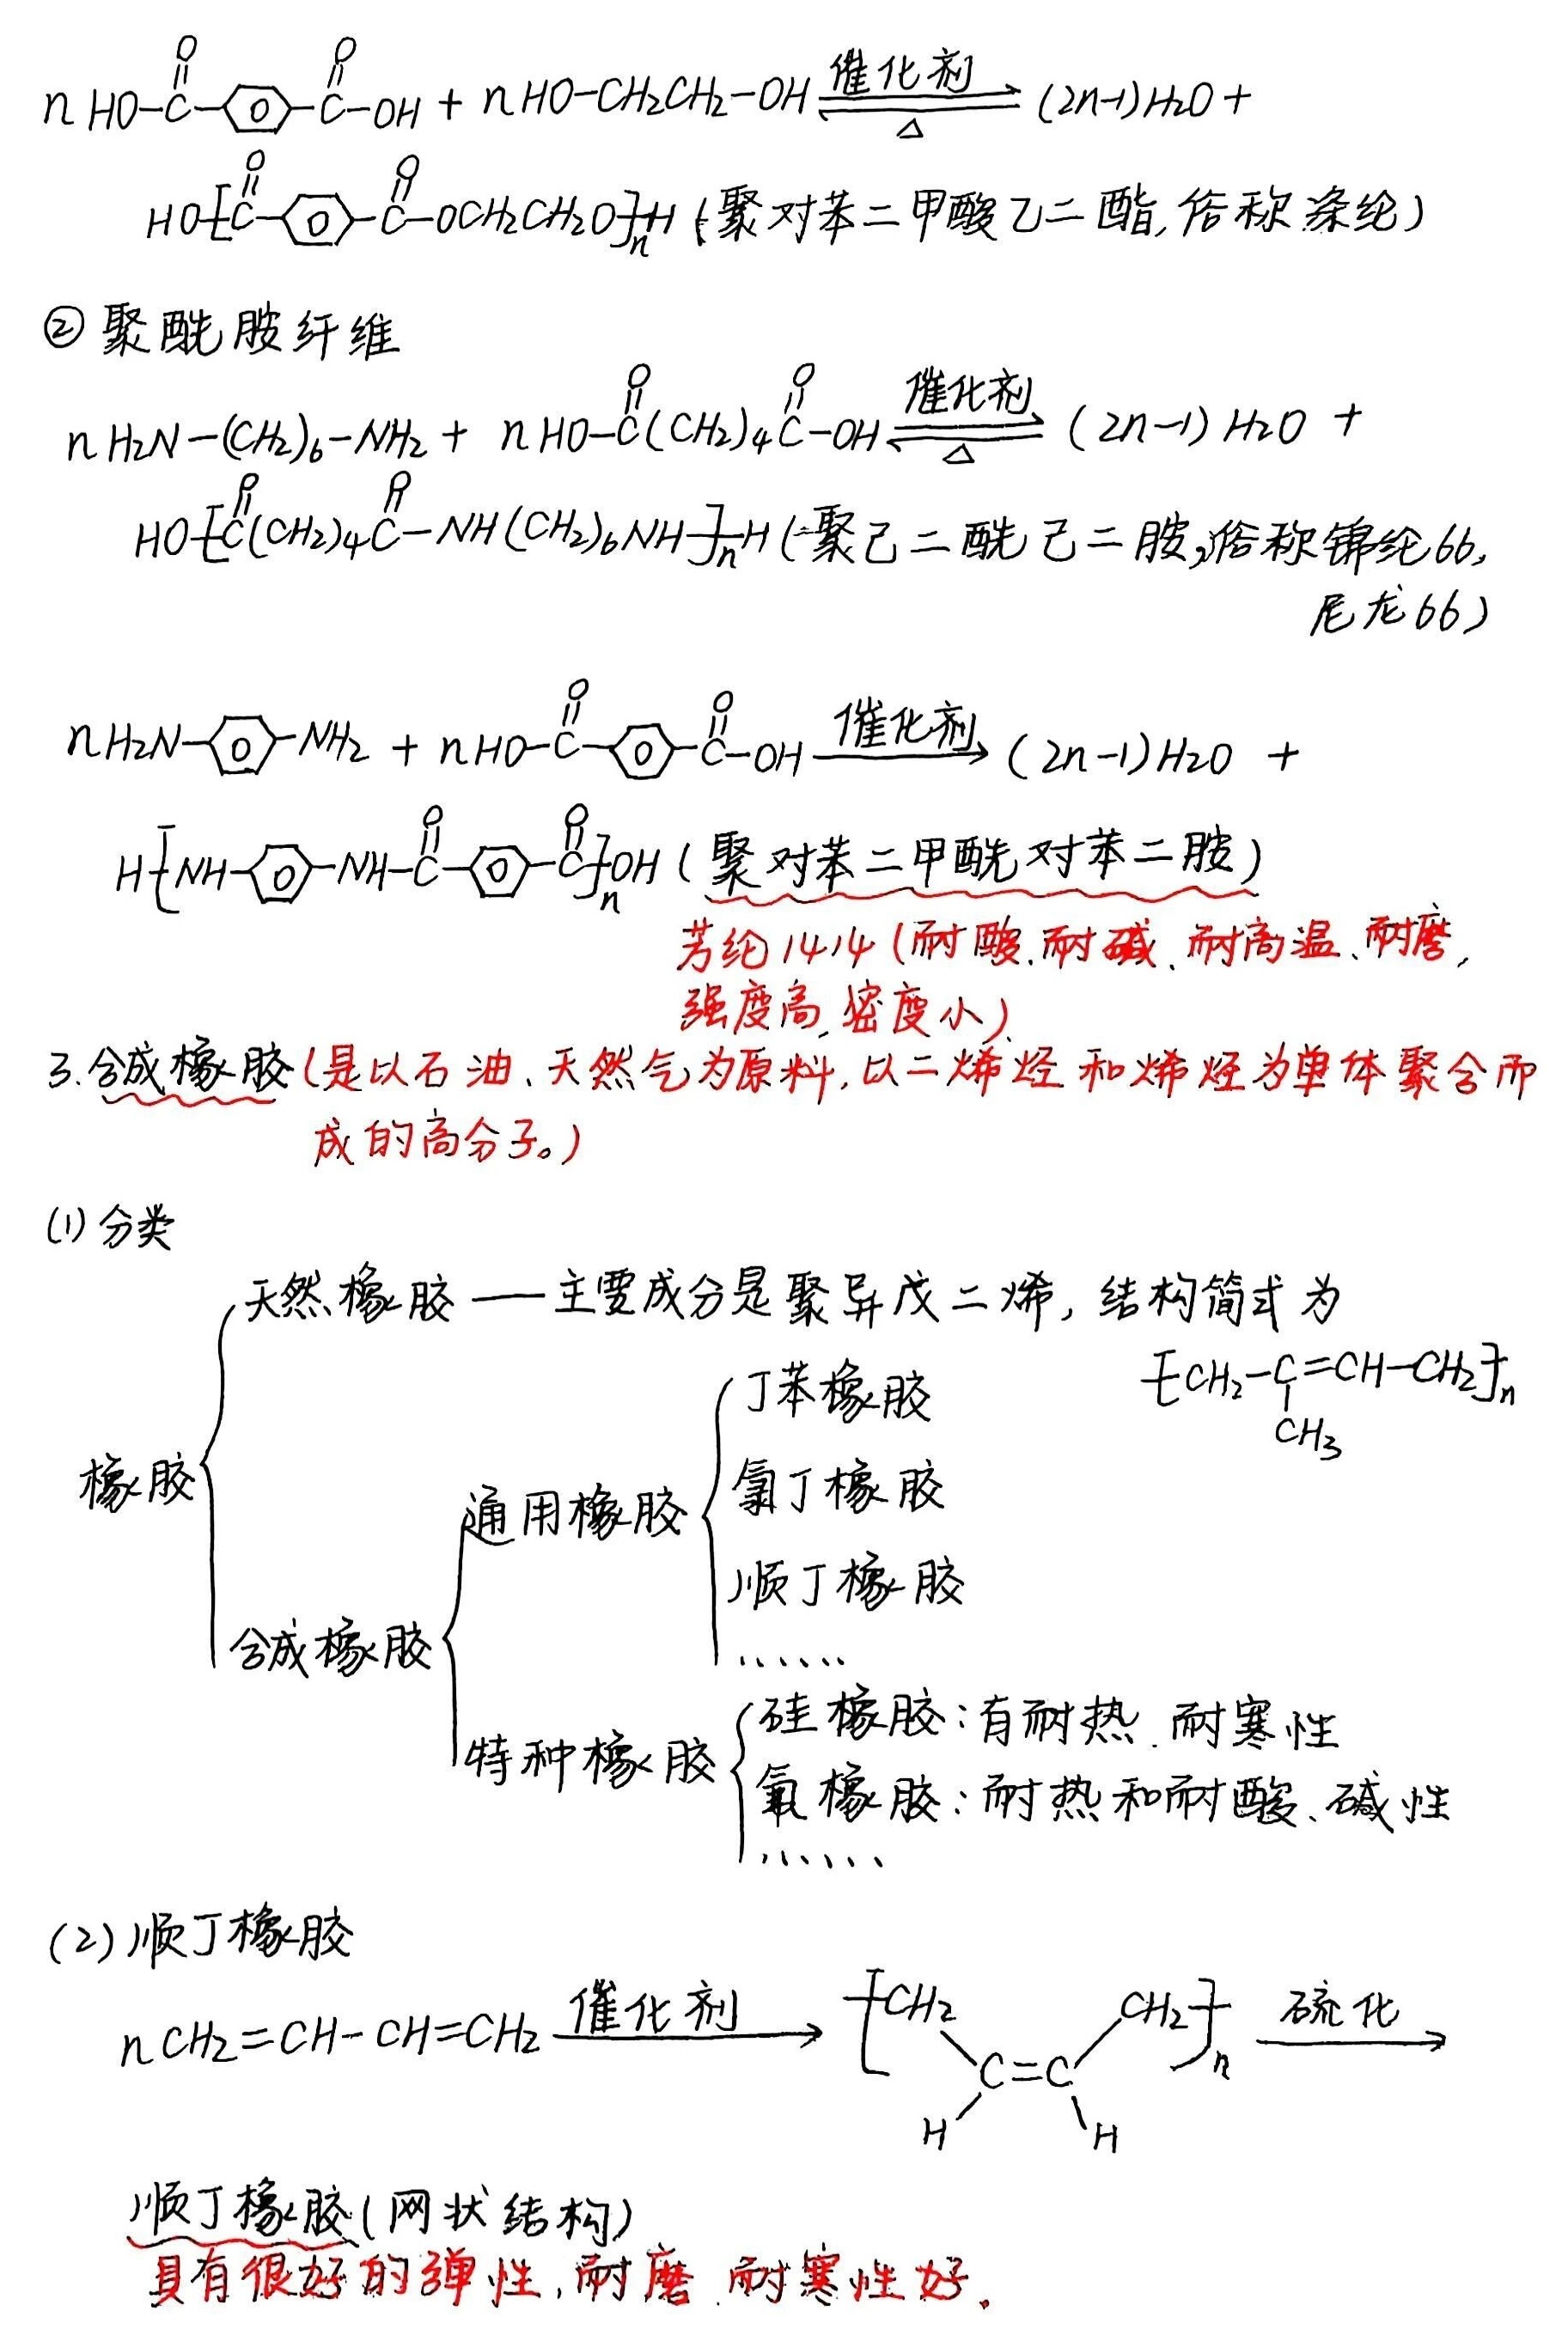 n HO-C(=O)-⌬-C(=O)-OH + n HO-CH₂CH₂-OH ⇌[催化剂/△] (2n-1)H₂O +
HO-[C(=O)-⌬-C(=O)-OCH₂CH₂O]ₙ-H (聚对苯二甲酸乙二酯,俗称涤纶)
② 聚酰胺纤维
n H₂N-(CH₂)₆-NH₂ + n HO-C(=O)(CH₂)₄C(=O)-OH ⇌[催化剂/△] (2n-1) H₂O +
HO-[C(=O)(CH₂)₄C(=O)-NH(CH₂)₆NH]ₙ-H (聚己二酰己二胺,俗称锦纶66,
尼龙66)
n H₂N-⌬-NH₂ + n HO-C(=O)-⌬-C(=O)-OH →[催化剂] (2n-1)H₂O +
H-[NH-⌬-NH-C(=O)-⌬-C(=O)]ₙ-OH (聚对苯二甲酰对苯二胺)
芳纶1414 (耐酸、耐碱、耐高温、耐磨,
强度高,密度小)
3.合成橡胶(是以石油、天然气为原料,以二烯烃和烯烃为单体聚合而
成的高分子。)
(1) 分类
天然橡胶 — 主要成分是聚异戊二烯, 结构简式为
-[CH₂-C(CH₃)=CH-CH₂]ₙ-
橡胶
合成橡胶
通用橡胶
丁苯橡胶
氯丁橡胶
顺丁橡胶
……
特种橡胶
硅橡胶:有耐热、耐寒性
氟橡胶:耐热和耐酸、碱性
……
(2) 顺丁橡胶
n CH₂=CH-CH=CH₂ →[催化剂] -[CH₂ CH₂]ₙ- →[硫化]
C=C
H H
顺丁橡胶(网状结构)
具有很好的弹性,耐磨、耐寒性好。